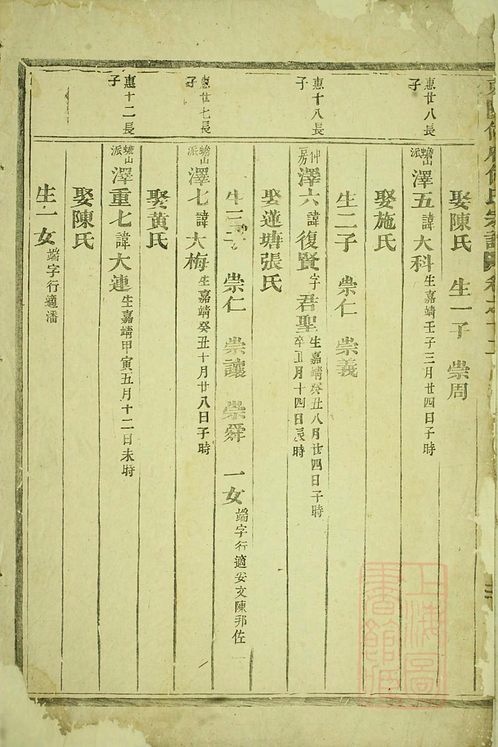 娶陳氏 生一子 崇周
惠廿八長子
派 澤五諱大科生嘉靖壬子三月廿四日子時
娶施氏
生二子 崇仁 崇義
惠十八長子
仲房澤六諱復賢字君聖生嘉靖癸丑八月廿四日子時卒 月十四日辰時
娶蓮塘張氏
生三子 崇仁 崇讓 崇舜 一女端字行適安文陳邦佐
惠廿七長子
派澤七諱大梅生嘉靖癸丑十月廿八日子時
娶黃氏
惠十二長子
派澤重七諱大連生嘉靖甲寅五月十二日未時
娶陳氏
生一女端字行適潘
上海圖書館藏